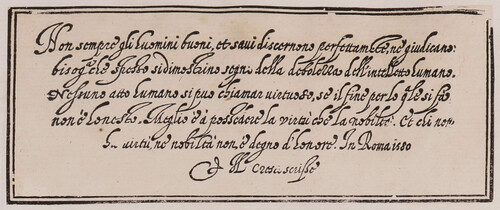 Non sempre gli huomini buoni, et savi discernono perfettamēte, ne giudicano:
bisogā che spesso si dimostrino segni della debolezza dell'intelletto humano.
Nessuno atto humano si puo chiamar virtuoso, se il fine per lo qle si fa
non è honesto. Meglio è à possedere la virtù che la nobiltà. Et chi non
ha virtù, ne nobiltà non è degno d'honore. In Roma 1580
Cresci scrisse